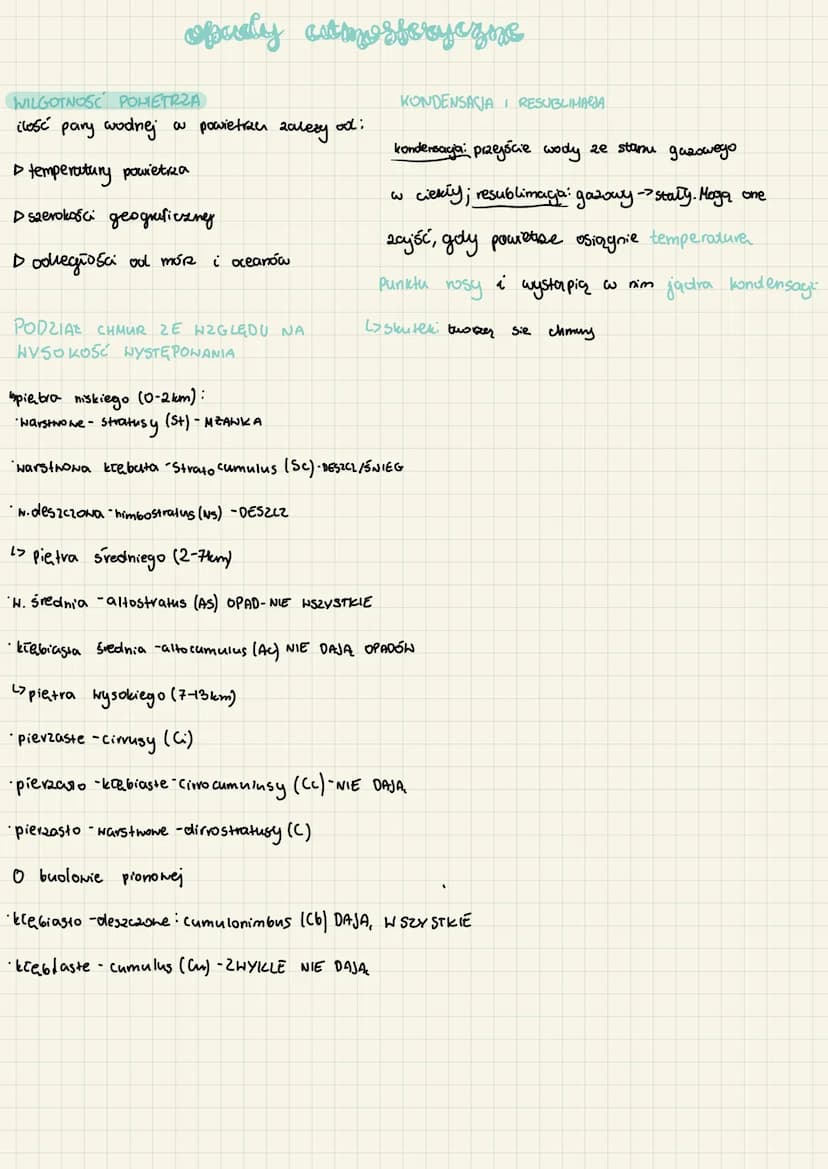 opady atmosferyczne
WILGOTNOŚĆ POWIETRZA
ilość pary wodnej w powietrzu zależy od:
▷ temperatury powietrza
▷ szerokości geograficznej
▷ odległości od mórz i oceanów
KONDENSACJA I RESUBLIMACJA
kondensacja: przejście wody ze stanu gazowego
w ciekły; resublimacja: gazowy -> stały. Mogą one
zajść, gdy powietrze osiągnie temperaturę
punktu rosy i wystąpią w nim jądra kondensacji
↳ skutek: tworzą się chmury
PODZIAŁ CHMUR ZE WZGLĘDU NA
WYSOKOŚĆ WYSTĘPOWANIA
↳ piętra niskiego (0-2km):
·warstwowe - stratusy (St) - MŻAWKA
·warstwowa kłębiasta - Stratocumulus (Sc) - DESZCZ/ŚNIEG
·w. deszczowa - nimbostratus (Ns) - DESZCZ
↳ piętra średniego (2-7km)
·w. średnia - altostratus (As) OPAD - NIE WSZYSTKIE
·kłębiasta średnia - altocumulus (Ac) NIE DAJĄ OPADÓW
↳ piętra wysokiego (7-13km)
·pierzaste - cirrusy (Ci)
·pierzasto - kłębiaste - Cirrocumulusy (Cc) - NIE DAJĄ
·pierzasto - warstwowe - cirrostratusy (C)
O budowie pionowej
·kłębiasto - deszczowe: cumulonimbus (Cb) DAJĄ, WSZYSTKIE
·kłębiaste - cumulus (Cu) - ZWYKLE NIE DAJĄ